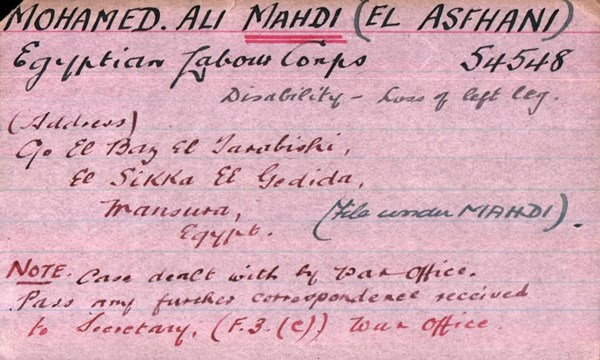 MOHAMED. ALI MAHDI (EL ASFHANI)
Egyptian Labour Corps 54548
Disability - Loss of left leg.
(Address)
C/o El Baz El Tarabishi,
El Sikka El Gedida,
Mansura, (File under MAHDI).
Egypt.
NOTE. Case dealt with by War Office.
Pass any further correspondence received
to Secretary, (F.3.(c)) War Office.